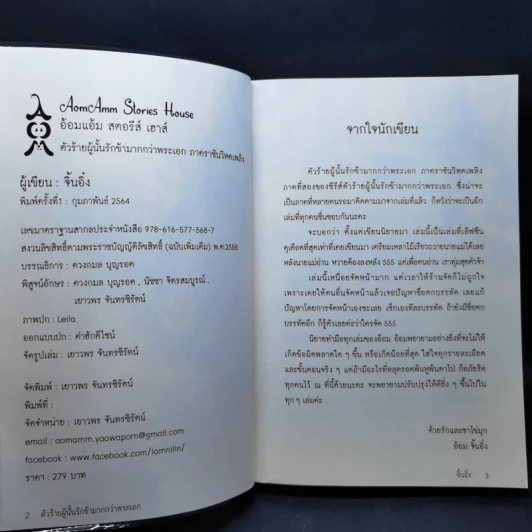 AomAmm Stories House
อ้อมแอ้ม สตอรีส์ เฮาส์
ตัวร้ายผู้นั้นรักข้ามากกว่าพระเอก ภาคราชันวิหคเพลิง
ผู้เขียน : จิ้นอิ๋ง
พิมพ์ครั้งที่1 : กุมภาพันธ์ 2564
เลขมาตราฐานสากลประจำหนังสือ 978-616-577-568-7
สงวนลิขสิทธิ์ตามพระราชบัญญัติลิขสิทธิ์ (ฉบับเพิ่มเติม) พ.ศ.2558
บรรณาธิการ : ดวงกมล บุญรอด
พิสูจน์อักษร : ดวงกมล บุญรอด , นัชชา จิตรสมบูรณ์ ,
เยาวพร จันทรชิรัตน์
ภาพปก : Leila
ออกแบบปก : คำยักดีไซน์
จัดรูปเล่ม : เยาวพร จันทรชิรัตน์
จัดพิมพ์ : เยาวพร จันทรชิรัตน์
พิมพ์ที่ :
จัดจำหน่าย : เยาวพร จันทรชิรัตน์
email : aomamm.yaowaporn@gmail.com
facebook : www.facebook.com/iamnilin/
ราคา : 279 บาท
2 ตัวร้ายผู้นั้นรักข้ามากกว่าพระเอก
จากใจนักเขียน
ตัวร้ายผู้นั้นรักข้ามากกว่าพระเอก ภาคราชันวิหคเพลิง
ภาคที่สองของซีรีส์ตัวร้ายผู้นั้นรักข้ามากกว่าพระเอก ซึ่งน่าจะ
เป็นภาคที่หลายคนรอมาคิดตามมาจากเล่มที่แล้ว ก็หวังว่าจะเป็นอีก
เล่มที่ทุกคนชื่นชอบกันนะคะ
จะบอกว่า ตั้งแต่เขียนนิยายมา เล่มนี้เป็นเล่มที่เลิฟซีน
ดุเดือดที่สุดเท่าที่เคยเขียนมา เตรียมเหลาไม้เรียวถวายนายแม่ได้เลย
หลังนายแม่อ่าน หวายต้องลงหลัง 555 แต่เพื่อคนอ่าน เราทุ่มสุดตัวจ้า
เล่มนี้เหนื่อยจัดหน้ามาก แต่เวลาให้ร้านจัดก็ไม่ถูกใจ
เพราะเคยให้คนอื่นจัดหน้าแล้วเจอปัญหาช็อตบรรทัด เลยแก้
ปัญหาโดยการจัดหน้าเองซะเลย เช็กเองทีละบรรทัด ถ้ายังมีช็อต
บรรทัดอีก ก็รู้ตัวเลยค่ะว่าใครจัด 555
นิยายทำมือทุกเล่มของอ้อม อ้อมพยายามอย่างยิ่งที่จะไม่ให้
เกิดข้อผิดพลาดใด ๆ ขึ้น หรือเกิดน้อยที่สุด ใส่ใจทุกรายละเอียด
และขั้นตอนจริง ๆ แต่ถ้ามีอะไรที่หลุดรอดพ้นหูพ้นตาไป ก็อภัยรีด
ทุกคนไว้ ณ ที่นี้ด้วยนะคะ จะพยายามปรับปรุงให้ดียิ่ง ๆ ขึ้นไปใน
ทุกๆ เล่มค่ะ
ด้วยรักและชาไข่มุก
อ้อม จิ้นอิ๋ง
จิ้นอิ๋ง 3